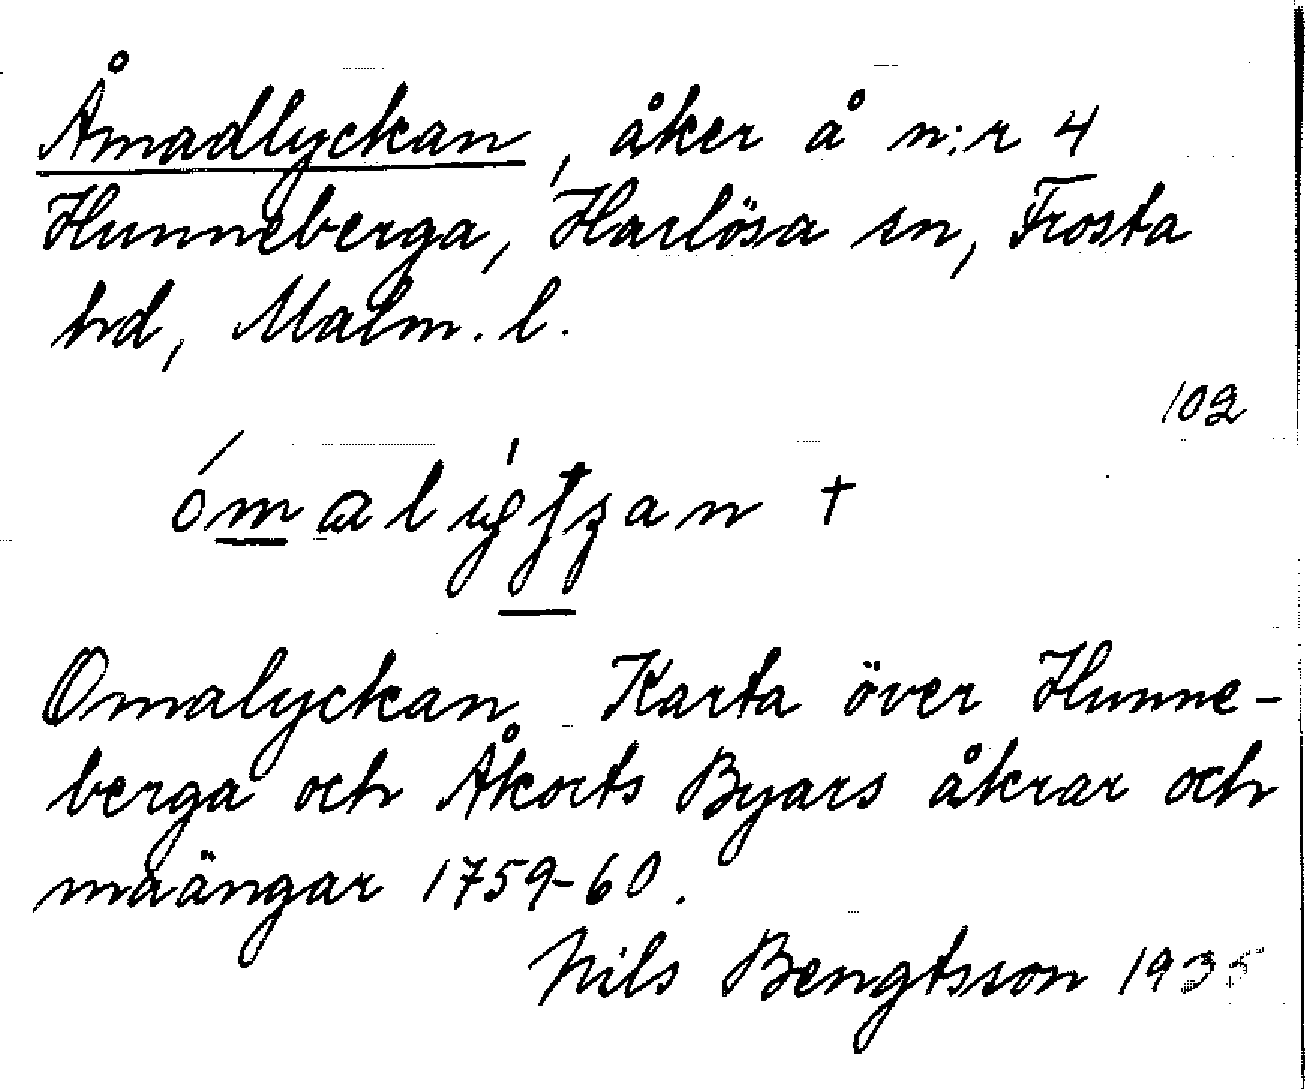 Åmadlyckan, åker å n:r 4
Hunneberga, Harlösa sn, Frosta
hd, Malm. l.
102
Omalyckan. Karta över Hunne-
berga och Åkorts Byars åkrar och
måängar 1759-60.
Nils Bengtsson 1935